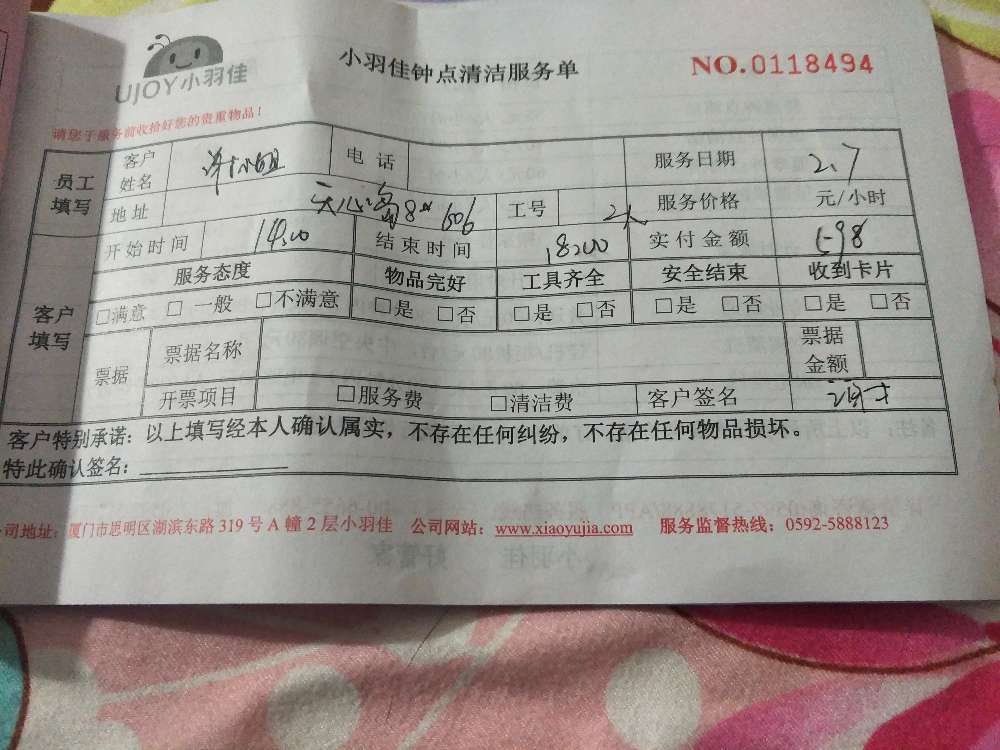 UJOY小羽佳
小羽佳钟点清洁服务单
NO.0118494
请您于服务前收拾好您的贵重物品！
员工填写 客户姓名 许小姐 电话 服务日期 2.7
地址 8# 606 工号 2人 服务价格 元/小时
开始时间 14:00 结束时间 18:00 实付金额
客户填写 服务态度 物品完好 工具齐全 安全结束 收到卡片
□满意 □一般 □不满意 □是 □否 □是 □否 □是 □否 □是 □否
票据 票据名称 票据金额
开票项目 □服务费 □清洁费 客户签名
客户特别承诺：以上填写经本人确认属实，不存在任何纠纷，不存在任何物品损坏。
特此确认签名：
司地址：厦门市思明区湖滨东路 319 号 A 幢 2 层小羽佳 公司网站：www.xiaoyujia.com 服务监督热线：0592-5888123